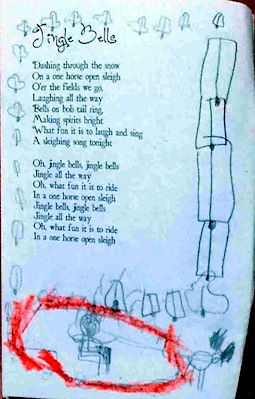 Jingle Bells
Dashing through the snow
On a one horse open sleigh
O'er the fields we go,
Laughing all the way
Bells on bob tail ring,
Making spirits bright
What fun it is to laugh and sing
A sleighing song tonight
Oh, jingle bells, jingle bells
Jingle all the way
Oh, what fun it is to ride
In a one horse open sleigh
Jingle bells, jingle bells
Jingle all the way
Oh, what fun it is to ride
In a one horse open sleigh